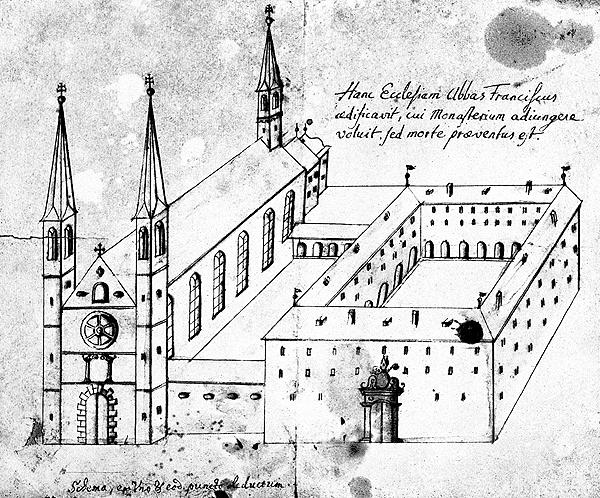 Hanc Ecclesiam Abbas Franciscus
ædificavit, cui Monasterium adiungere
voluit. sed morte præventus est.
Schema, ex uno & eod. puncto deductum.